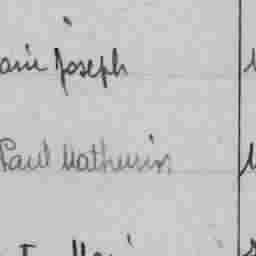 arie Joseph
Paul Mathurin